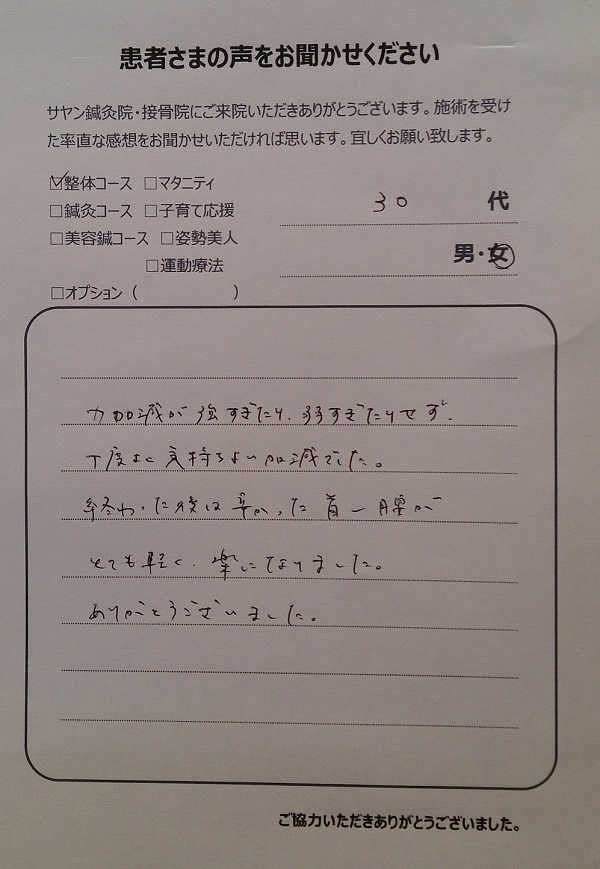 患者さまの声をお聞かせください
サヤン鍼灸院・接骨院にご来院いただきありがとうございます。施術を受け
た率直な感想をお聞かせいただければ思います。宜しくお願い致します。
☑整体コース □マタニティ
□鍼灸コース □子育て応援
□美容鍼コース □姿勢美人
□運動療法
□オプション（ ）
30 代
男・女
力加減が強すぎたり、弱すぎたりせず、
丁度よく気持ちよい加減でした。
終わった後は辛かった首〜腰が
とても軽く、楽になりました。
ありがとうございました。
ご協力いただきありがとうございました。